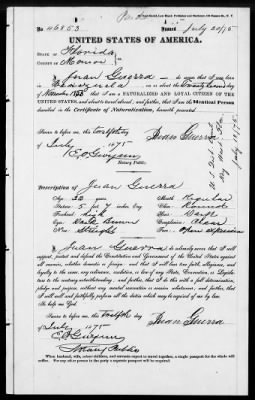 No. 46853
Issued July 20/75
UNITED STATES OF AMERICA.
STATE OF Florida
COUNTY OF Monroe
I Juan Guerra do swear that I was born
in on the
that I am a NATURALIZED AND LOYAL CITIZEN OF THE
UNITED STATES, and about to travel abroad; and further, that I am the Identical Person
described in the Certificate of Naturalization, herewith presented.
Sworn to before me, this twelfth day
of July 1875
Juan Guerra
Notary Public.
Description of Juan Guerra
Age: 32 years
Mouth: Regular
Stature: 5 feet 7 inches Eng.
Chin: Round
Forehead: high
Hair: Dark
Eyes: Brown
Complexion:
Nose: Straight
Face: expression
I Juan Guerra do solemnly swear that I will
support, protect and defend the Constitution and Government of the United States against
all enemies, whether domestic or foreign; and that I will bear true faith, allegiance, and
loyalty to the same, any ordinance, resolution, or law of any State, Convention, or Legisla-
ture to the contrary notwithstanding; and further, that I do this with a full determination,
pledge and purpose, without any mental reservation or evasion whatsoever; and further, that
I will well and faithfully perform all the duties which may be required of me by law.
So help me God.
Sworn to before me, this twelfth day
of July 1875
Juan Guerra
Notary Public
When husband, wife, minor children, and servants expect to travel together, a single passport for the whole will
suffice. For any other person in the party a separate passport will be required.